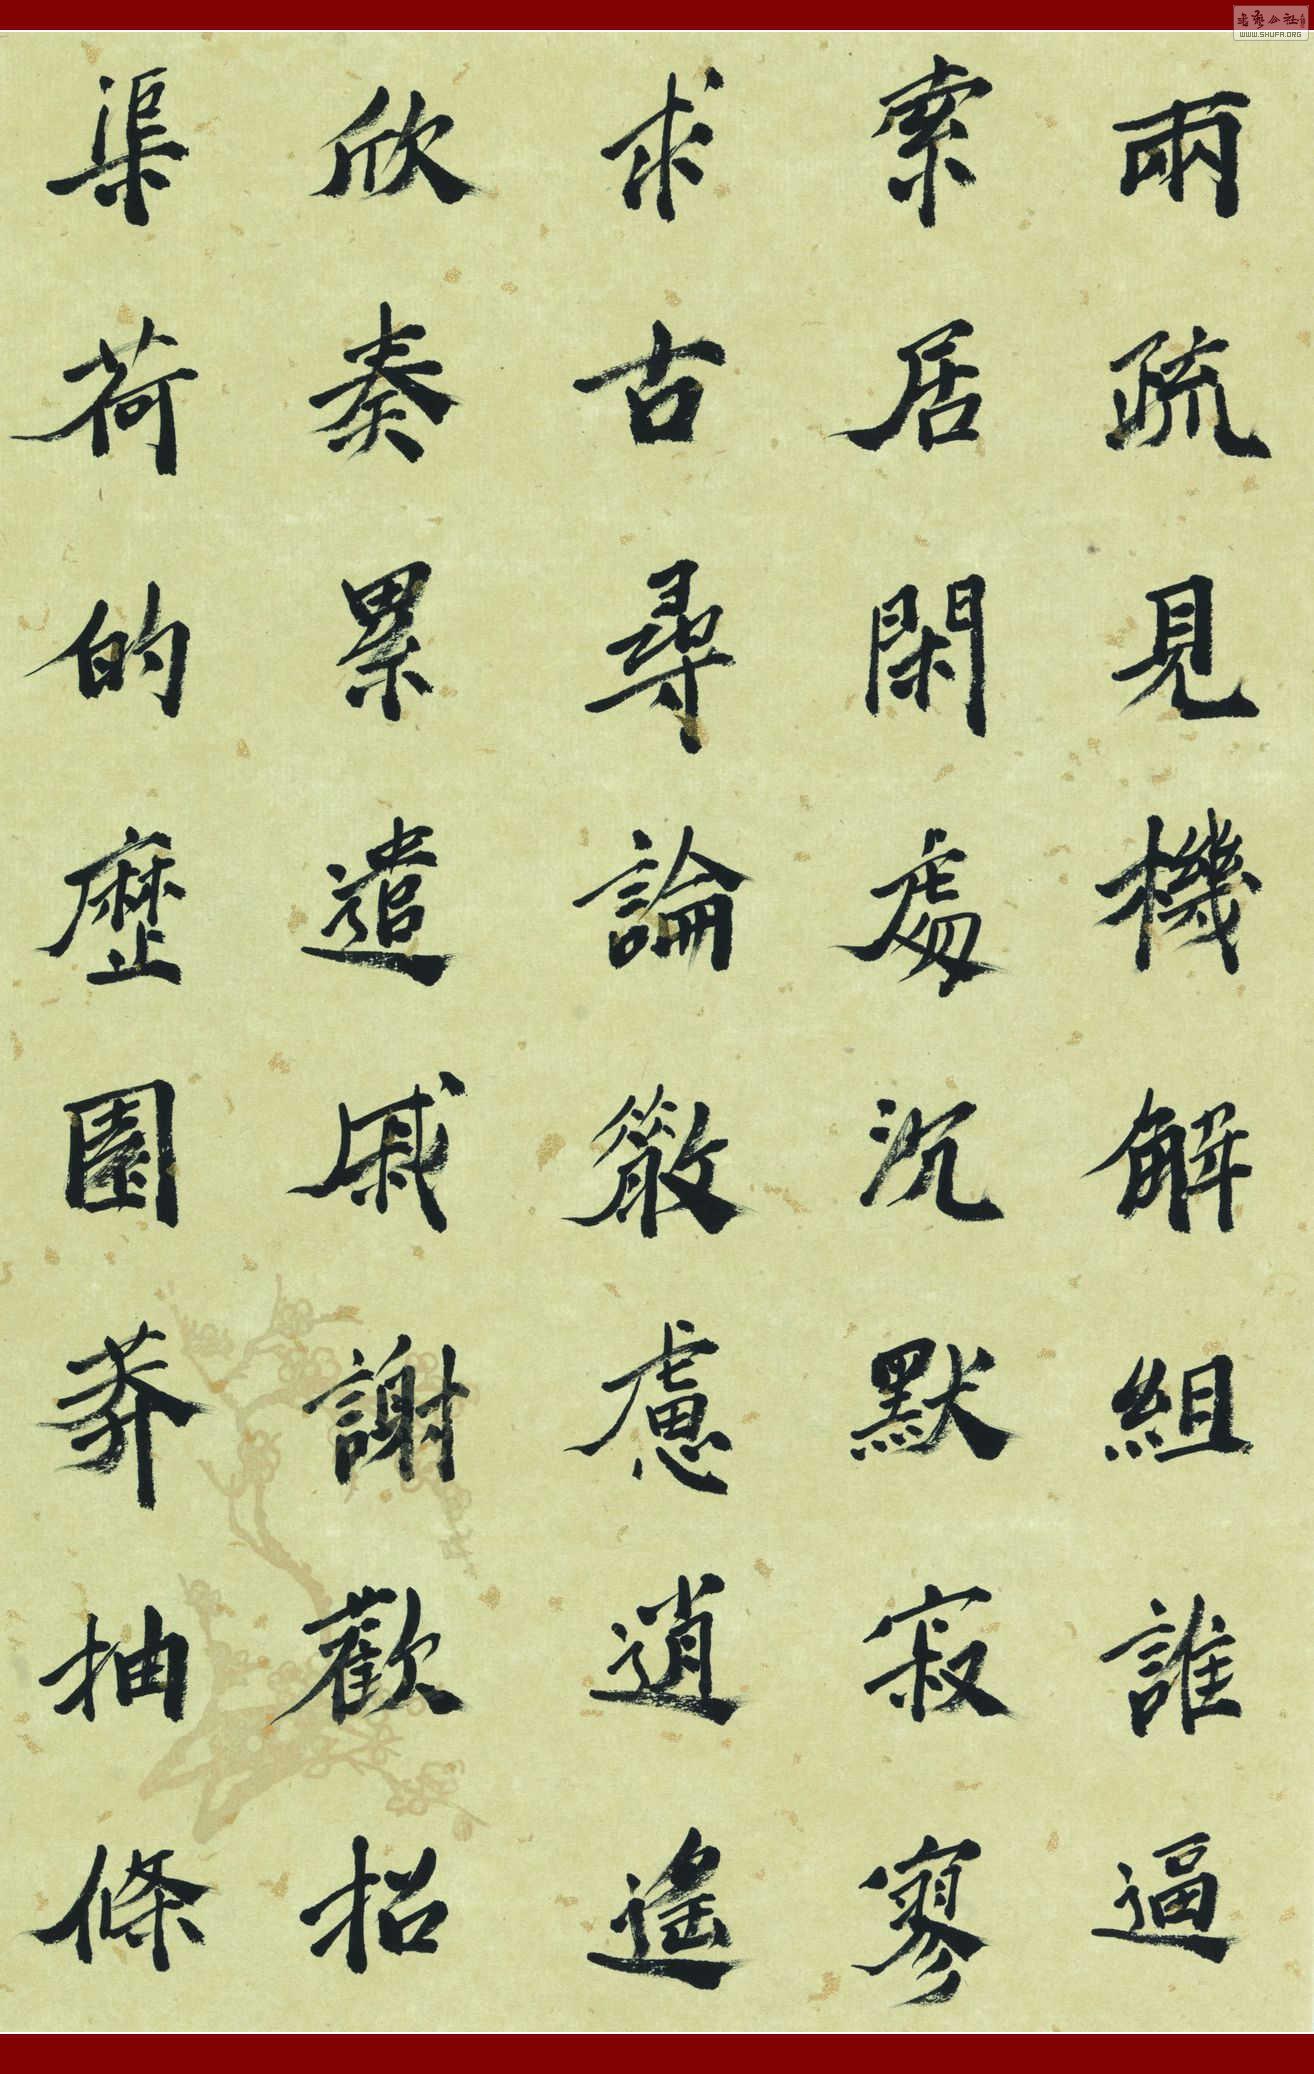 兩疏見機解組誰逼
索居閑處沉默寂寥
求古尋論散慮逍遙
欣奏累遣慼謝歡招
渠荷的歷園莽抽條
WWW.SHUFA.ORG